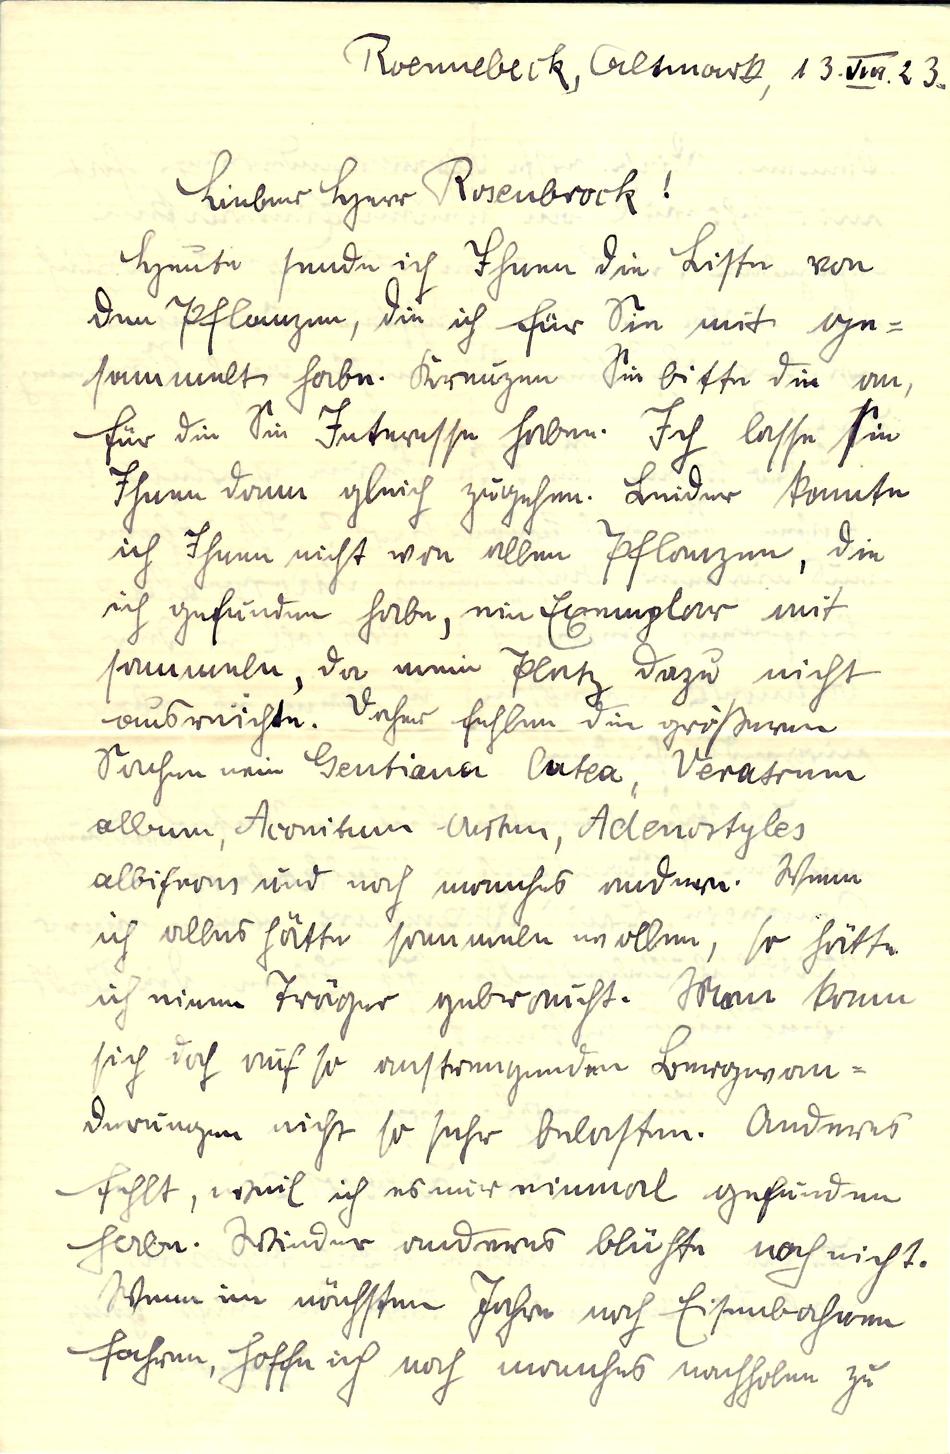 Roennebeck, Altmark, 13.VIII.23.
Lieber Herr Rosenbrock!
Heute sende ich Ihnen die Liste von
den Pflanzen, die ich für Sie mit ge=
sammelt habe. Kreuzen Sie bitte die an,
für die Sie Interesse haben. Ich lasse sie
Ihnen dann gleich zugehen. Leider konnte
ich Ihnen nicht von allen Pflanzen, die
ich gefunden habe, ein Exemplar mit
sammeln, da mein Platz dazu nicht
ausreichte. Daher fehlen die größeren
Sachen wie Gentiana lutea, Veratrum
album, Aconitum Arten, Adenostyles
albifrons und noch manches andere. Wenn
ich alles hätte sammeln wollen, so hätte
ich einen Träger gebraucht. Man kann
sich doch auf so anstrengenden Bergwan=
derungen nicht so sehr belasten. Anderes
fehlt, weil ich es nur einmal gefunden
habe. Wieder anderes blühte noch nicht.
Wenn im nächsten Jahre noch Eisenbahnen
fahren, hoffe ich noch manches nachholen zu